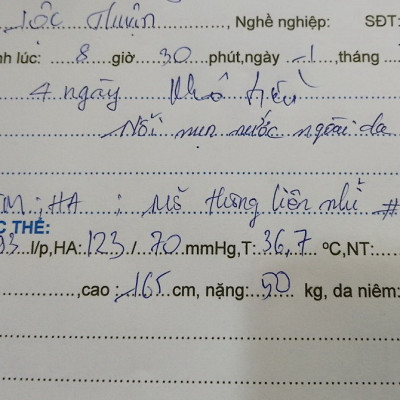 Lộc Thuận, Nghề nghiệp: SĐT:
nh lúc: 8 giờ 30 phút, ngày 1, tháng
4 ngày Nhổ
Nổi mụn nước ngoài da
TM; HA; Mổ thông liên nhĩ #
C THỂ:
93 l/p, HA: 123 / 70 mmHg, T: 36,7 ºC, NT:
,cao : 165 cm, nặng: 50 kg, da niêm: